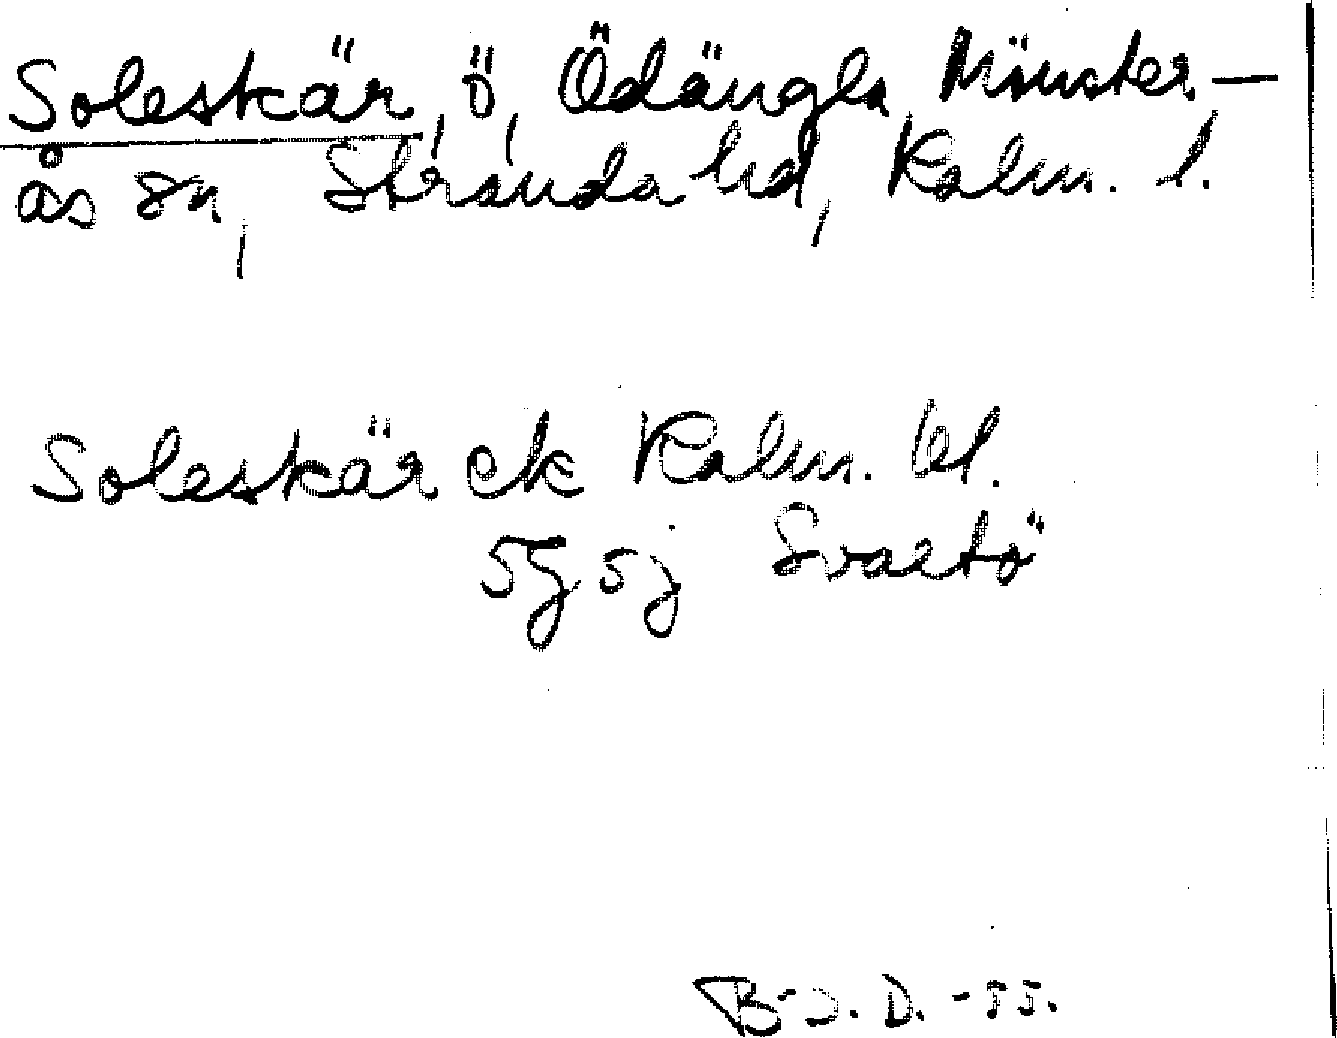 Soleskär, ö, Ödängla, Mönster-
ås sn, Stranda hd, Kalm. l.
Soleskär ek Kalm. bl.
5g 5j Svartö
B-J. D. -55.